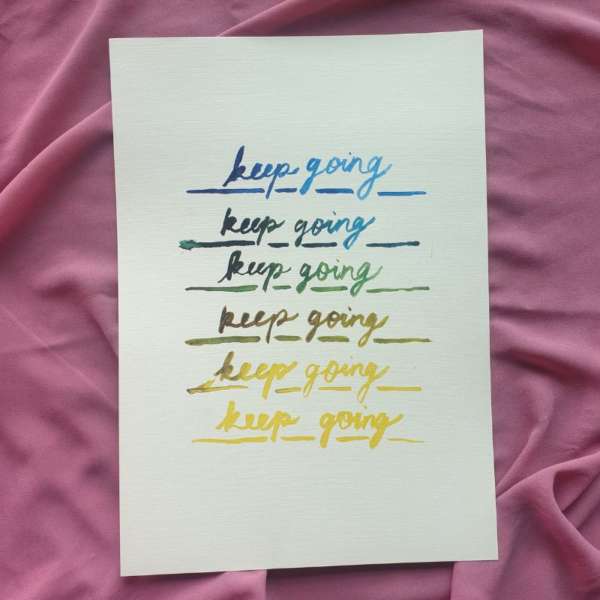 keep going
keep going
keep going
keep going
keep going
keep going